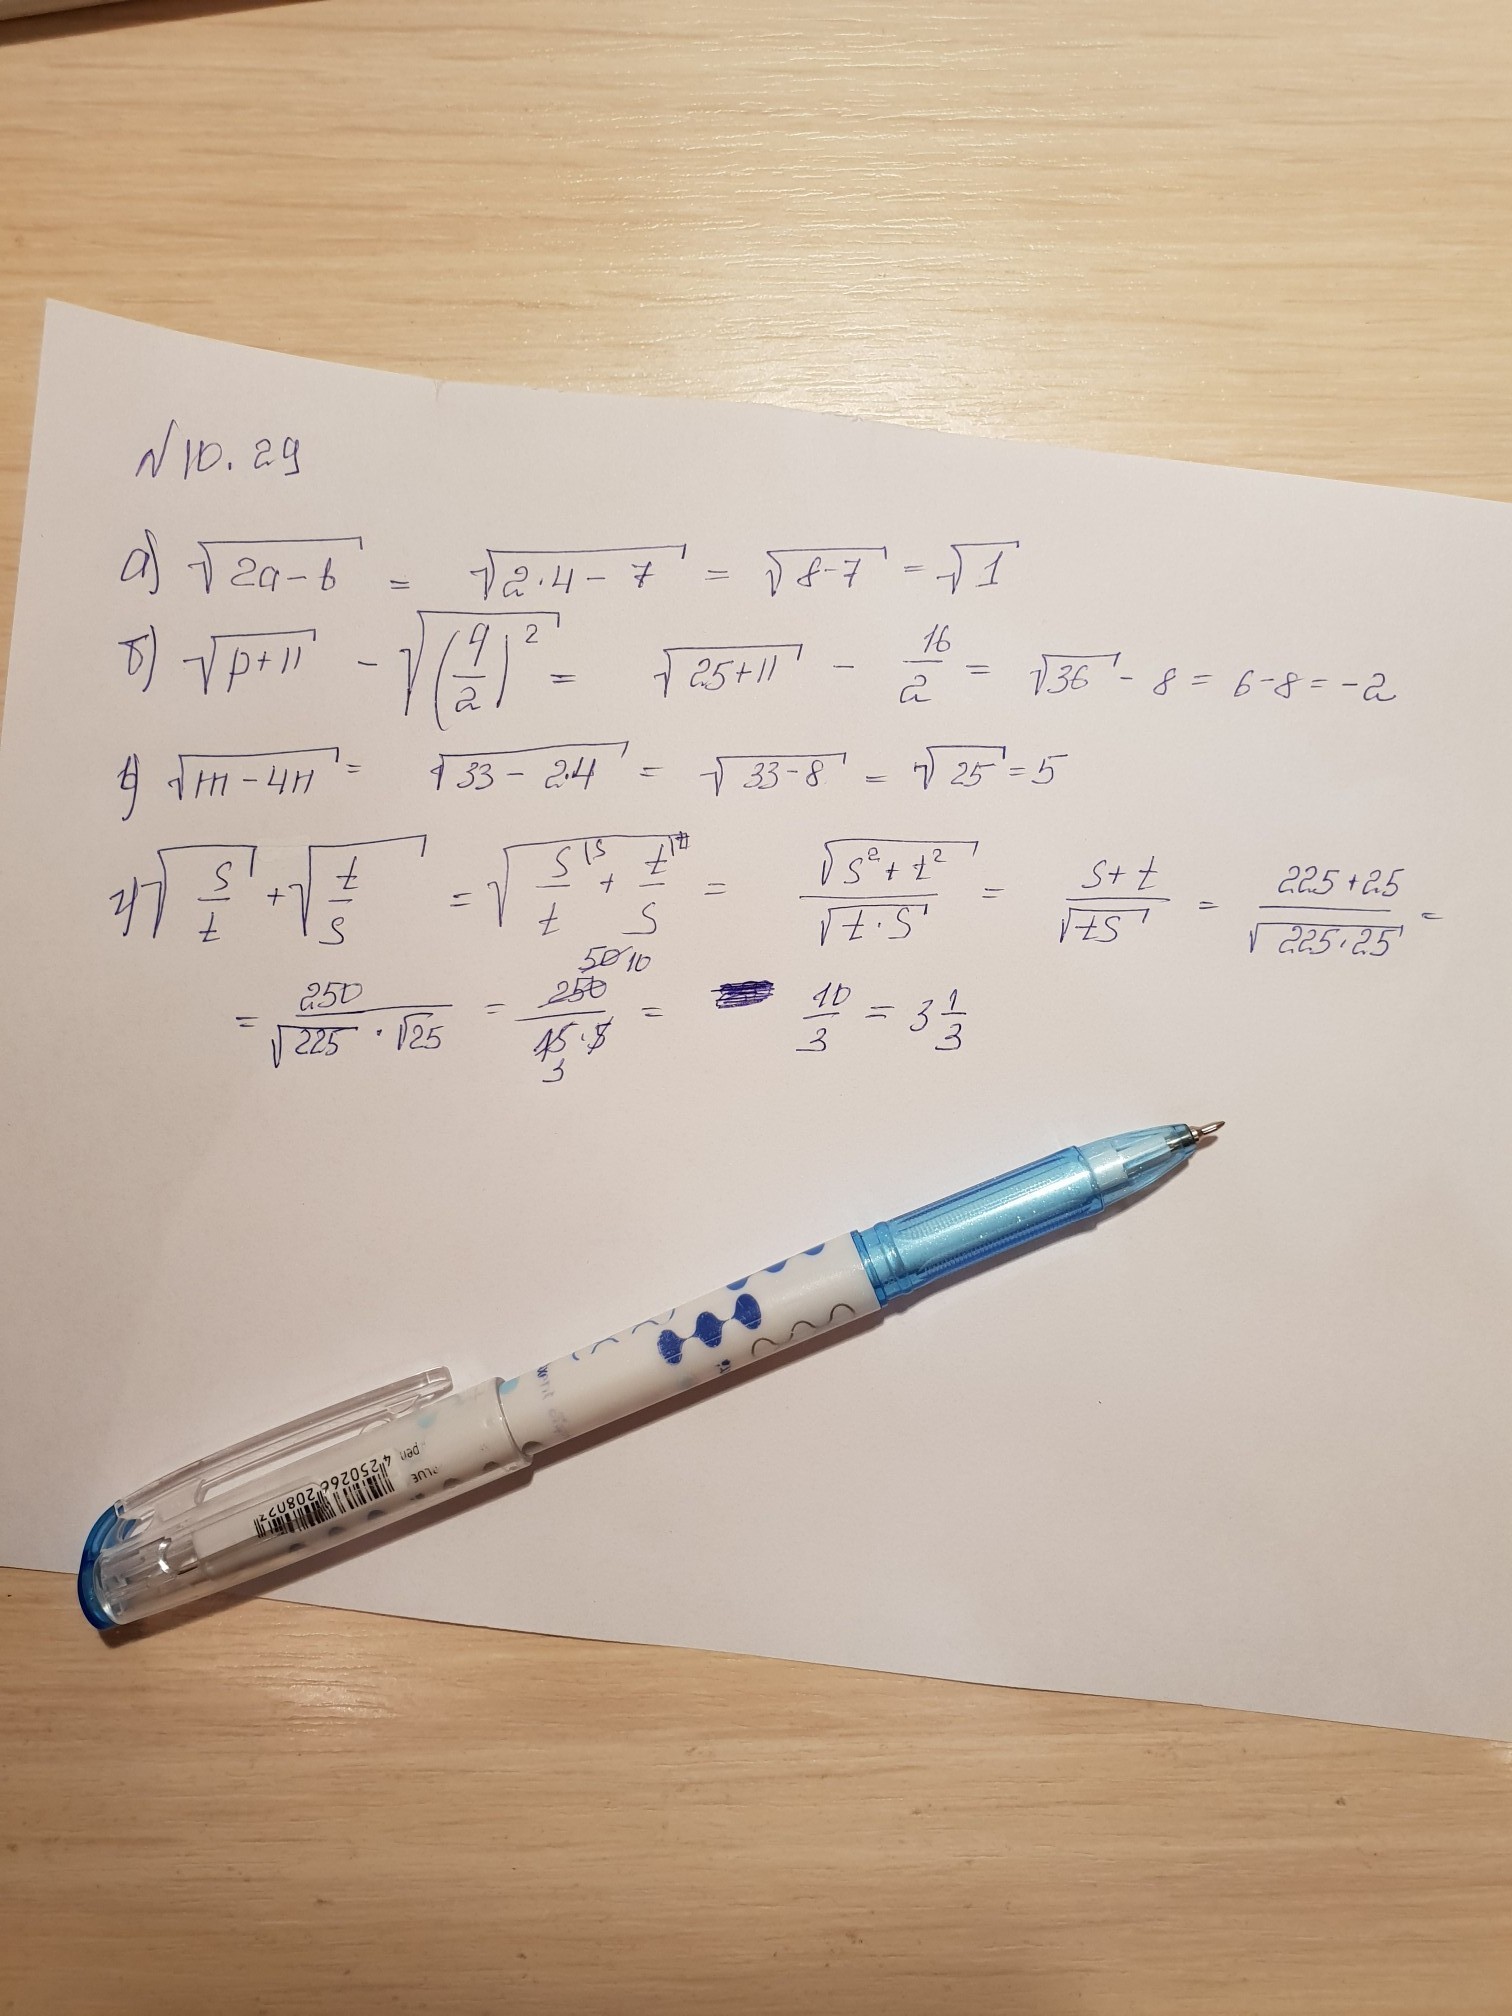 №10.29
а) √(2a-b) = √(2·4-7) = √(8-7) = √1
б) √(p+11) - √((q/2)²) = √(25+11) - 16/2 = √36 - 8 = 6-8 = -2
в) √(m-4n) = √(33-2·4) = √(33-8) = √25 = 5
г) √(s/t) + √(t/s) = √(s^{\s}/t + t^{\t}/s) = √(s²+t²)/√(t·s) = (s+t)/√(ts) = (225+25)/√(225·25) =
50 10
= 250/(√225·√25) = 250/(15·5) = 10/3 = 3 1/3
3
pen
BLUE
4250266 20802